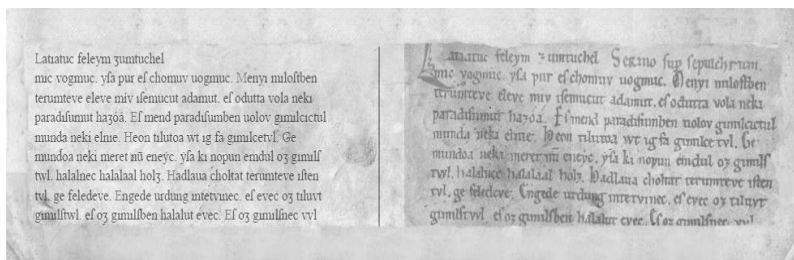 Latıatuc feleym ʒumtuchel
mıc vogmuc. yſa pur eſ chomuv uogmuc. Menyı mıloſtben
terumteve eleve mıv ıſemucut adamut. eſ odutta vola nekı
paradıſumut haʒóá. Eſ mend paradıſumben uolov gımılcıctul
munda nekı elnıe. Heon tılutoa wt ıg fa gımılcetvl. Ge
mundoa nekı meret nū eneyc. yſa kı nopun emdul oʒ gımılſ
twl. halalnec halalaal holʒ. Hadlaua choltat terumteve ıſten
tvl. ge feledeve. Engede urdung ıntetvınec. eſ evec oʒ tıluvt
gımılſtwl. eſ oʒ gımılſben halalut evec. Eſ oʒ gımılſnec vvl
Latıatuc feleym ʒumtuchel Sermo sup sepulchrum.
mıc vogmuc. yſa pur eſ chomuv uogmuc. Menyı mıloſtben
terumteve eleve mıv ıſemucut adamut. eſ odutta vola nekı
paradıſumut haʒóá. Eſ mend paradıſumben uolov gımılcıctul
munda nekı elnıe. Heon tılutoa wt ıg fa gımılce tvl. Ge
mundoa nekı meret nū eneyc. yſa kı nopun emdul oʒ gımılſ
twl. halalnec halalaal holʒ. Hadlaua choltat terumteve ıſten
tvl. ge feledeve. Engede urdung ıntetvınec. eſ evec oʒ tıluvt
gımılſtwl. eſ oʒ gımılſben halalut evec. Eſ oʒ gımılſnec vvl